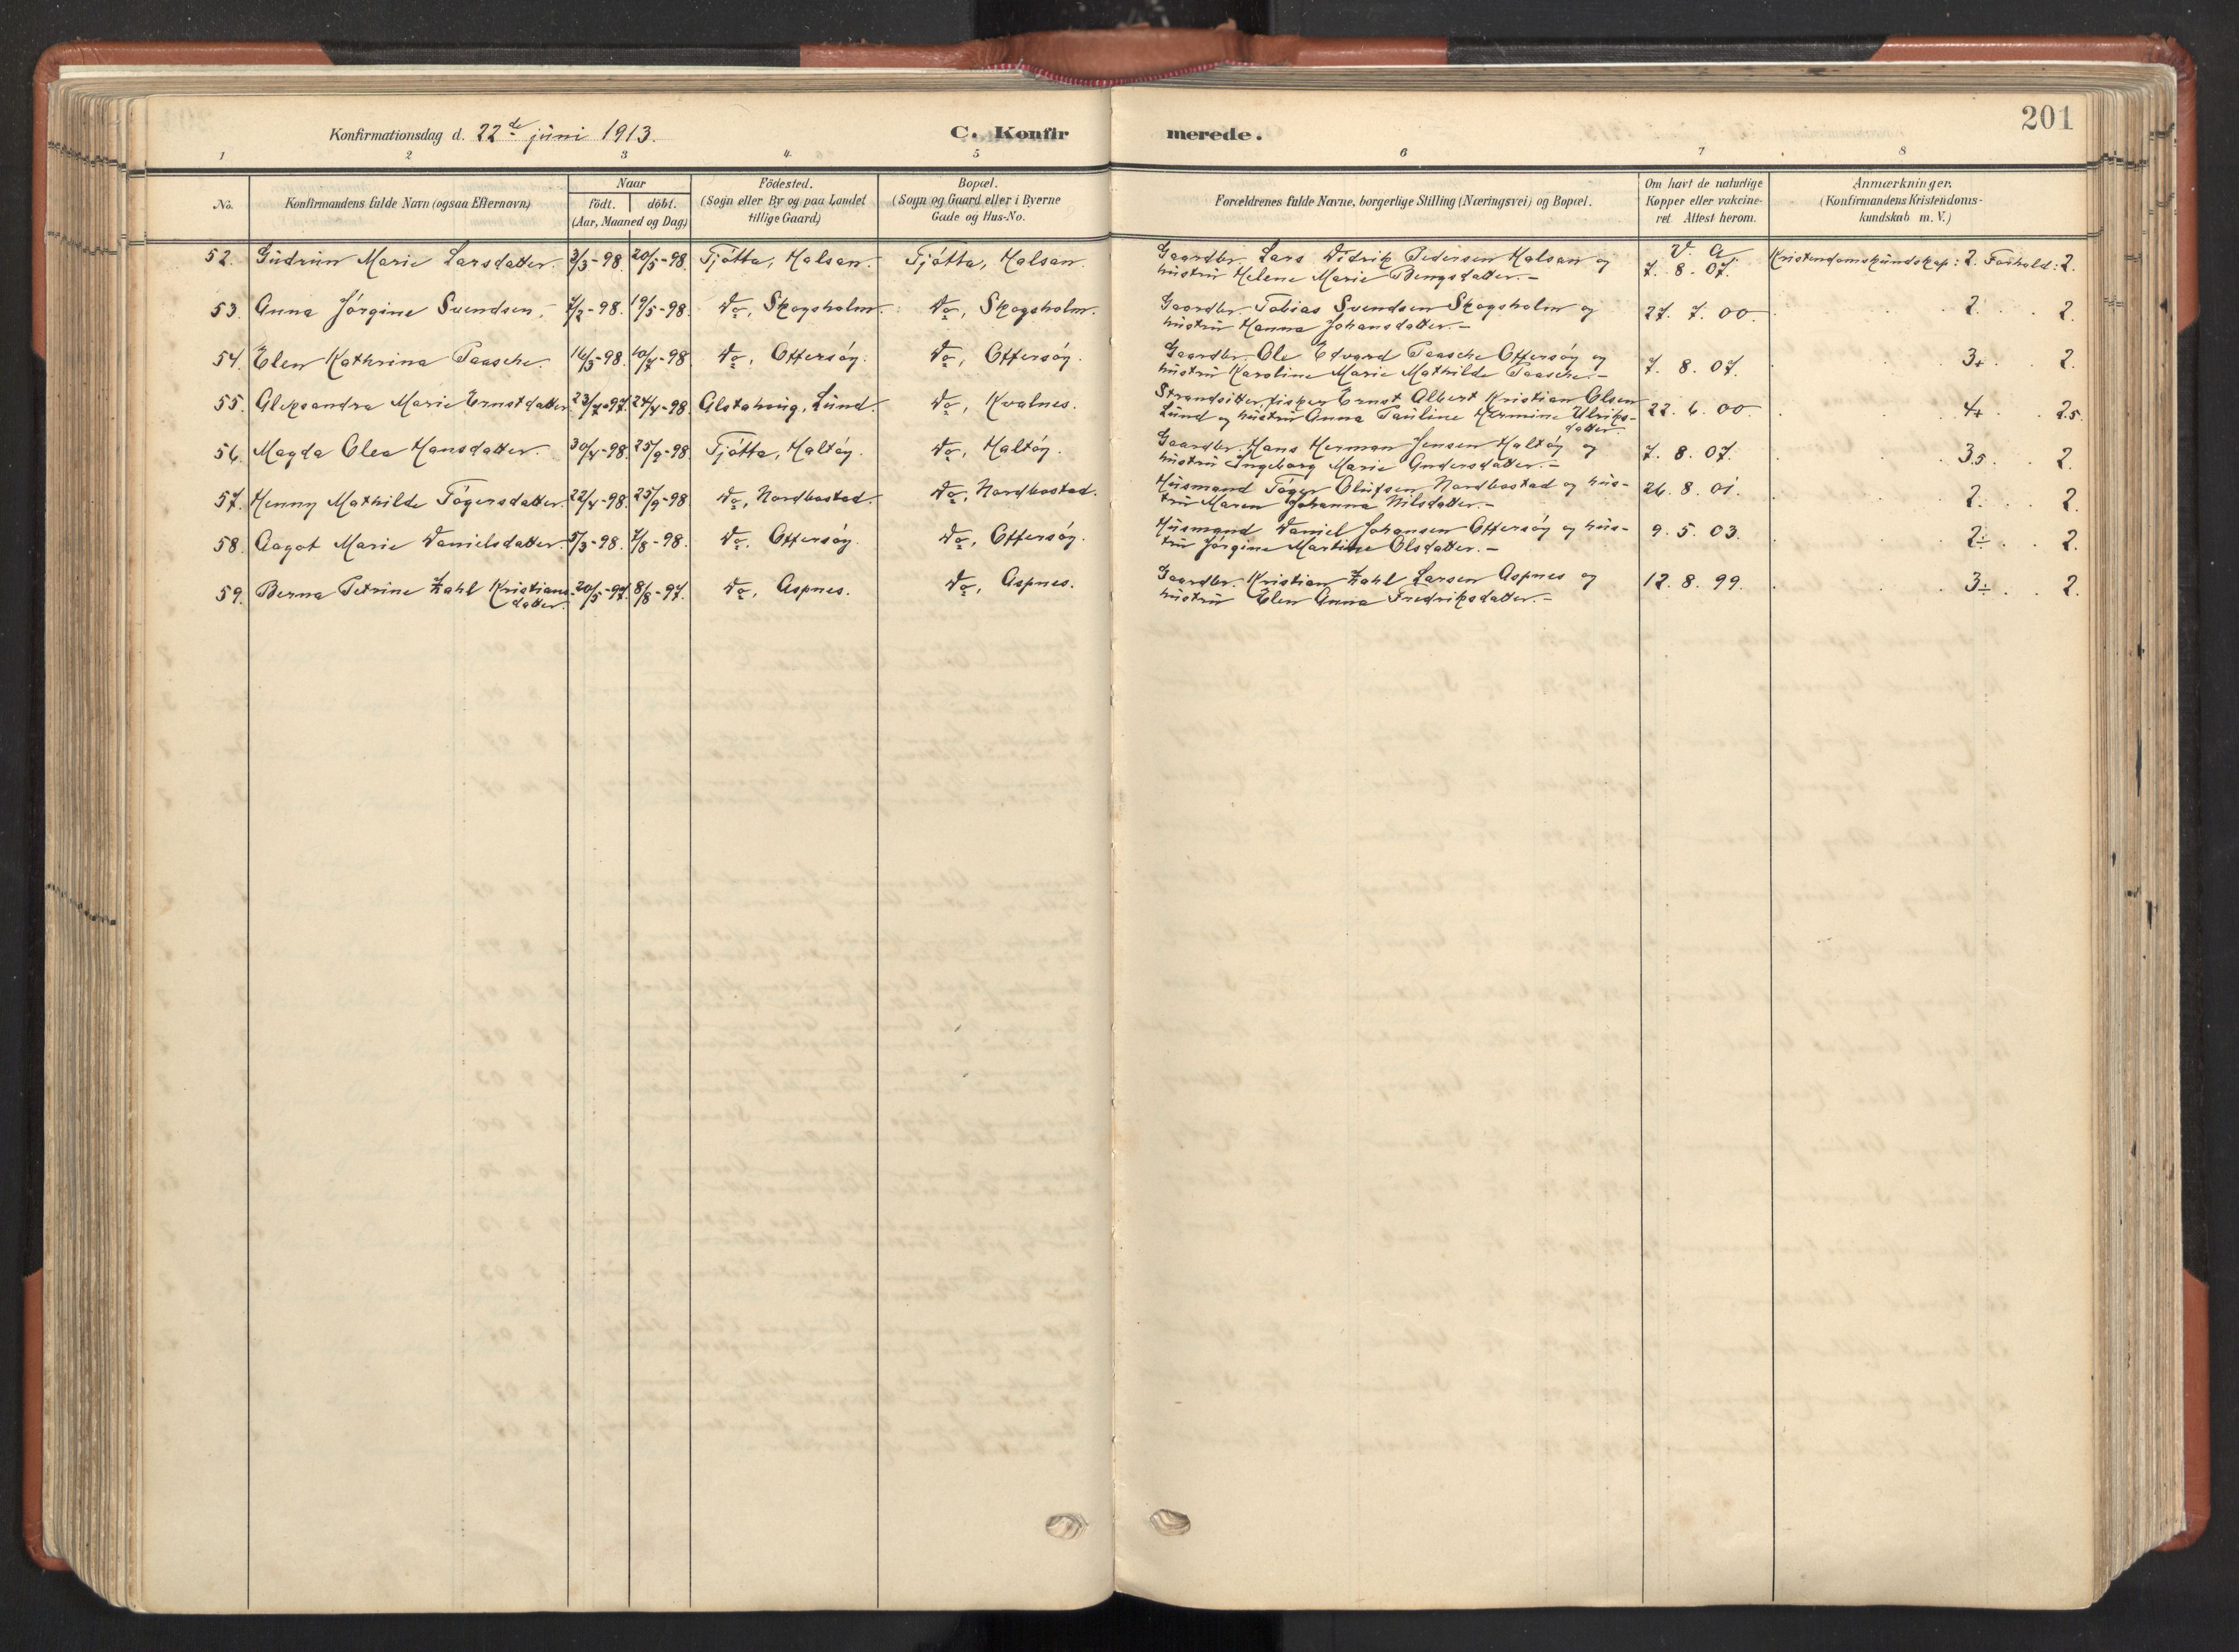 201
Konfirmationsdag d. 22de juni 1913.
C. Konfirmerede.
1 2 3 4. 5 6 7 8
No.
Konfirmandens fulde Navn (ogsaa Efternavn)
Naar
födt. döbt.
(Aar, Maaned og Dag)
Födested.
(Sogn eller By og paa Landet
tillige Gaard)
Bopæl.
(Sogn og Gaard eller i Byerne
Gade og Hus-No.
Forældrenes fulde Navne, borgerlige Stilling (Næringsvei) og Bopæl.
Om havt de naturlige
Kopper eller vakcine-
ret. Attest herom.
Anmærkninger.
(Konfirmandens Kristendoms-
kundskab m. V.)
52. Gudrun Marie Larsdatter. 3/3-98. 20/5-98. Tjøtta, Halsan. Tjøtta, Halsan. Gaardbr. Lars Didrik Pedersen Halsan og V. A. Kristendomskundskap: 2. Forhold: 2.
hustru Helene Marie Bengsdatter.- 7. 8. 07.
53. Anna Jørgine Svendsen. 7/2-98. 19/5-98. Do, Skogsholm. Do, Skogsholm. Gaardbr. Tobias Svendsen Skogsholm og 27. 7. 00. 2. 2.
hustru Hanna Johansdatter.-
54. Elen Kathrina Paasche. 16/3-98. 10/7-98. Do, Offersøy. Do, Offersøy. Gaardbr. Ole Edvard Paasche Offersøy og 7. 8. 07. 3+ 2.
hustru Karoline Marie Mathilde Paasche.-
55. Aleksandra Marie Ernstdatter 23/7-97. 24/4-98. Alstahaug, Lund. Do, Kvalnes. Strandsitter, fisker Ernst Albert Kristian Olsen 22. 6. 00. 4+ 2.5.
Lund og hustru Anna Pauline Hermine Ulriks-
datter.
56. Magda Olea Hansdatter. 30/4-98. 25/9-98. Tjøtta, Haltøy. Do, Haltøy. Gaardbr. Hans Herman Jensen Haltøy og 7. 8. 07. 3.5. 2.
hustru Ingeborg Marie Andersdatter.-
57. Henny Mathilde Tøgersdatter. 22/4-98. 25/9-98. Do, Nordbostad. Do, Nordbostad. Husmand Tøger Olufsen Nordbostad og hus- 26. 8. 01. 2. 2.
tru Maren Johanna Nilsdatter.-
58. Aagot Marie Danielsdatter. 5/3-98. 7/8-98. Do, Offersøy. Do, Offersøy. Husmand Daniel Johansen Offersøy og hus- 9. 5. 03. 2÷ 2.
tru Jørgine Martine Olsdatter.-
59. Berna Petrine Zahl Kristians- 20/5-97. 8/8-97. Do, Aspnes. Do, Aspnes. Gaardbr. Kristian Zahl Larsen Aspnes og 12. 8. 99. 3÷ 2.
datter. hustru Elen Anna Fredriksdatter.-